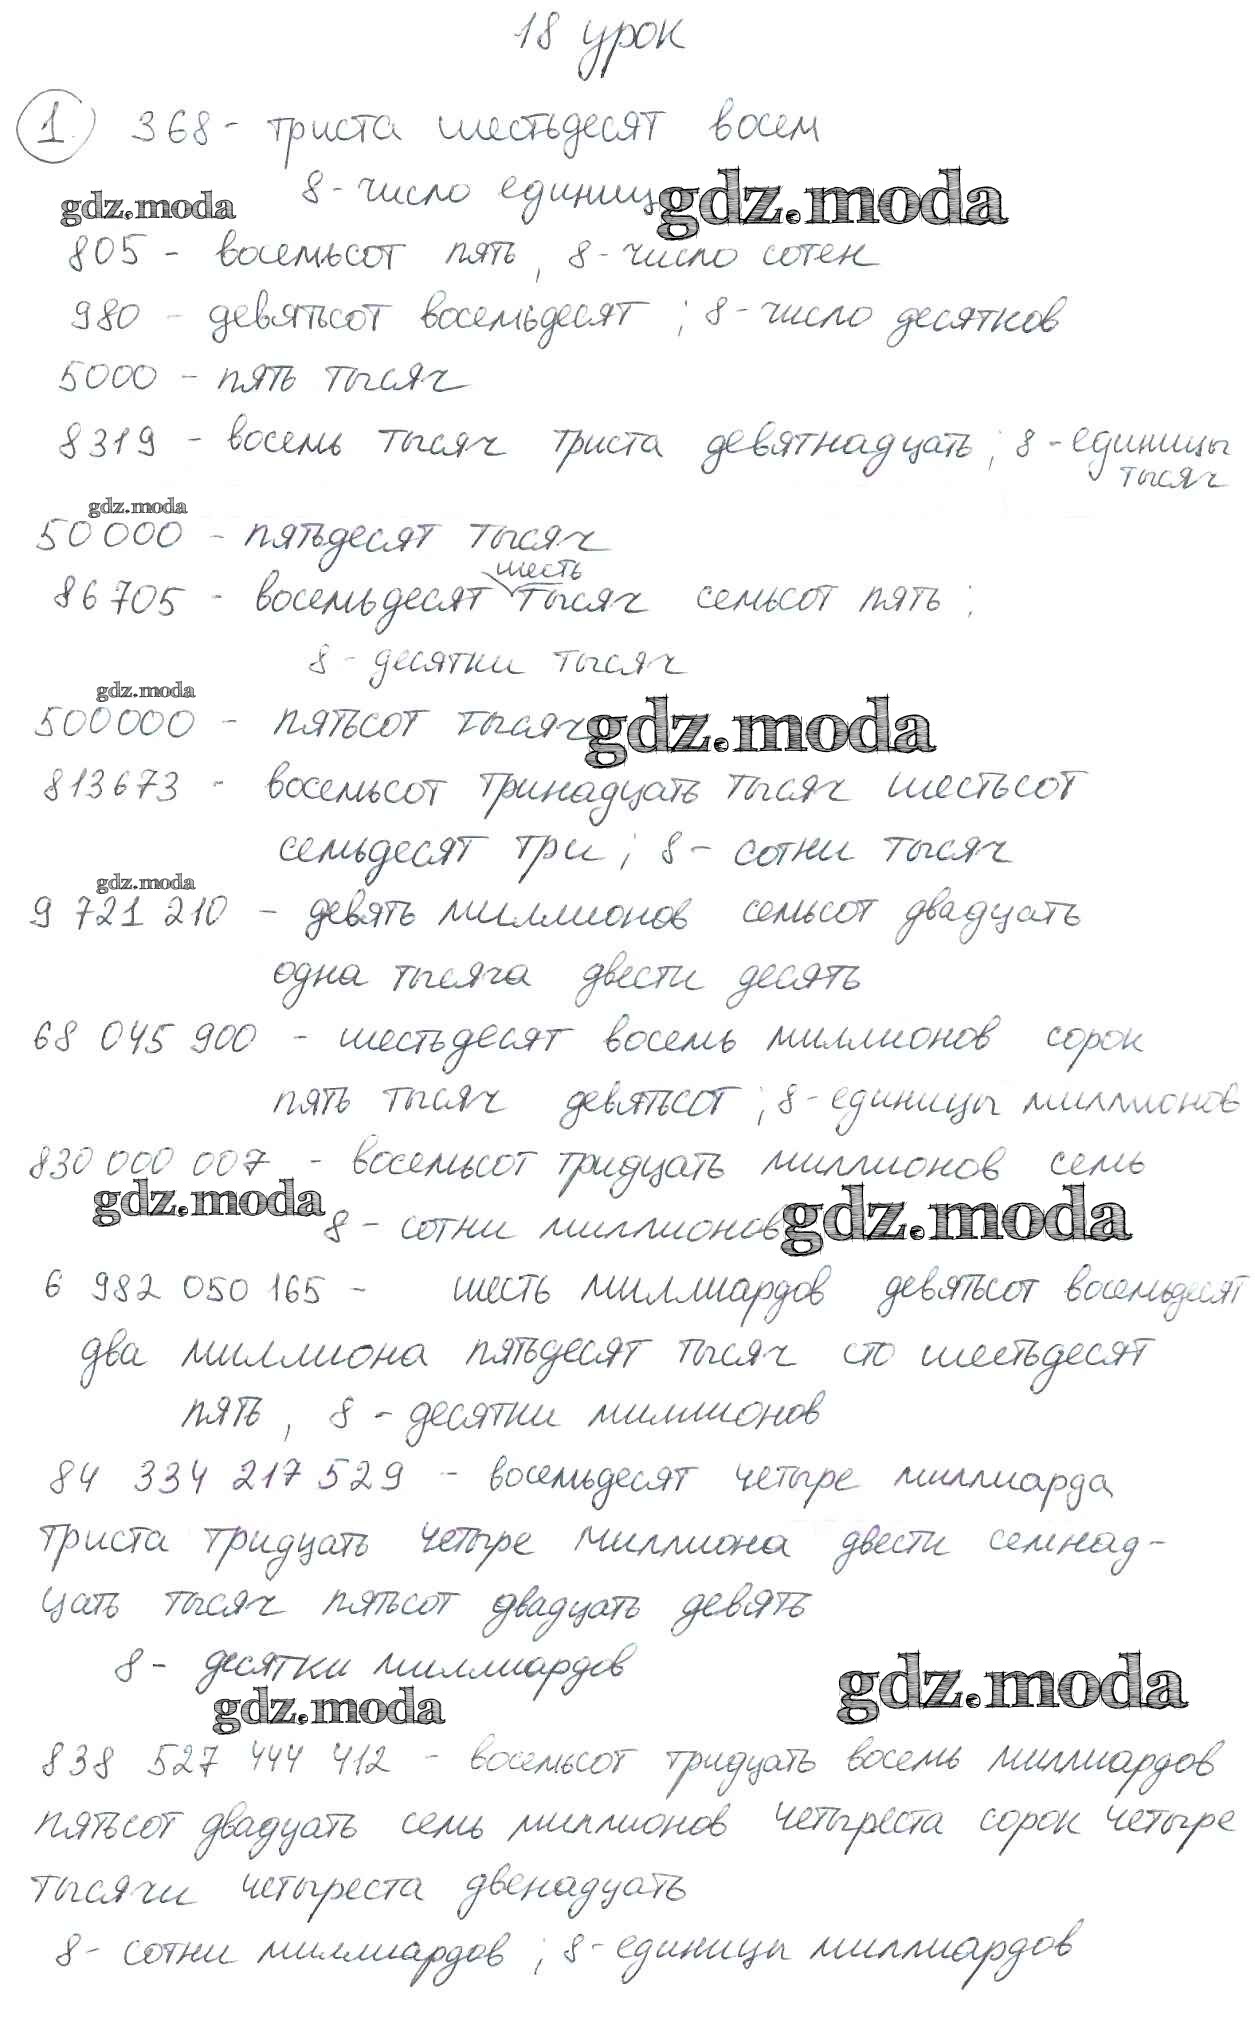 18 урок
1 368 - триста шестьдесят восем
8 - число единиц gdz.moda
gdz.moda
805 - восемьсот пять, 8 - число сотен
980 - девятьсот восемьдесят ; 8 - число десятков
5000 - пять тысяч
8319 - восемь тысяч триста девятнадцать; 8 - единицы
тысяч
gdz.moda
50 000 - пятьдесят тысяч
шесть
86 705 - восемьдесят тысяч семьсот пять ;
8 - десятки тысяч
gdz.moda
500000 - пятьсот тысяч gdz.moda
813673 - восемьсот тринадцать тысяч шестьсот
семьдесят три ; 8 - сотни тысяч
gdz.moda
9 721 210 - девять миллионов семьсот двадцать
одна тысяча двести десять
68 045 900 - шестьдесят восемь миллионов сорок
пять тысяч девятьсот ; 8 - единицы миллионов
830 000 007 - восемьсот тридцать миллионов семь
gdz.moda 8 - сотни миллионов gdz.moda
6 982 050 165 - шесть миллиардов девятьсот восемьдесят
два миллиона пятьдесят тысяч сто шестьдесят
пять , 8 - десятки миллионов
84 334 217 529 - восемьдесят четыре миллиарда
триста тридцать четыре миллиона двести семнад-
цать тысяч пятьсот двадцать девять
8 - десятки миллиардов
gdz.moda gdz.moda
838 527 444 412 - восемьсот тридцать восемь миллиардов
пятьсот двадцать семь миллионов четыреста сорок четыре
тысячи четыреста двенадцать
8 - сотни миллиардов ; 8 - единицы миллиардов